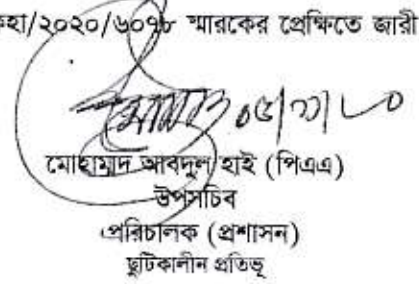 কহা/২০২০/৬০৭৮ স্মারকের প্রেক্ষিতে জারী
০৫/১১/২০
মোহাম্মাদ আবদুল হাই (পিএএ)
উপসচিব
পরিচালক (প্রশাসন)
ছুটিকালীন প্রতিভূ